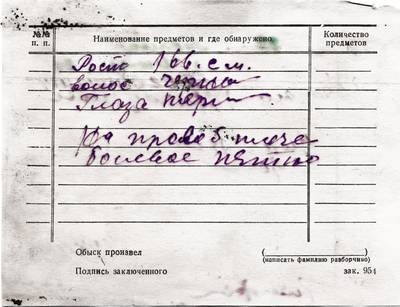 №№ п. п.
Наименование предметов и где обнаружено
Количество предметов
Рост 166. с.м.
волос черный
Глаза
На право плече
Болевое пятно
Обыск произвел
(написать фамилию разборчиво)
Подпись заключенного
зак. 954